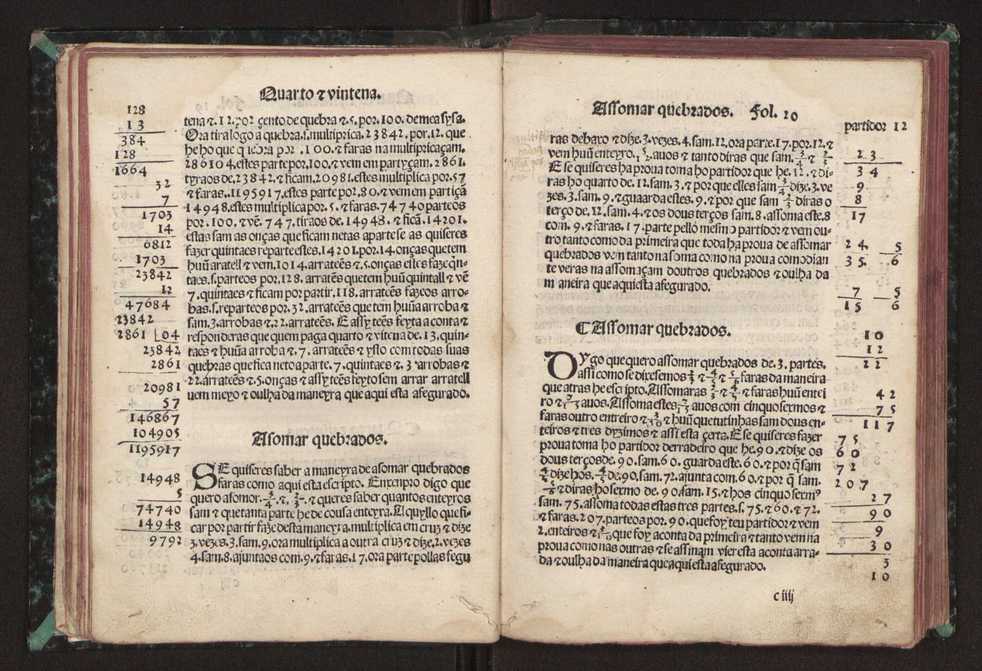 Quarto ⁊ vintena.
128
13
384
128
1664
32
7
1703
14
6812
1703
23842
12
47684
23842
2861 04
23842
2861
20981
57
146867
104905
1195917
14948
5
74740
14948
9792
tena ⁊. 12. por çento de quebra ⁊. 5. por. 100. de mea sysa.
Ora tira logo a quebra. s. multiprica. 23842. por. 12. que
he ho que quebra por .100. ⁊ faras na multipricaçam.
286104. estes parte por. 100. ⁊ vem em partyçam. 2861.
tyraos de. 23842. ⁊ ficam. 20981. estes multiplica por. 57
⁊ faras. .1195917. estes parte por. 80. ⁊ vem em partiçã
14948. estes multiplica por. 5. ⁊ faras. 74740 parteos
por. 100. ⁊ vẽ. 747. tiraos de. 14948. ⁊ ficã. 14201.
estas sam as onças que ficam netas aparte se as quiseres
fazer quintaes reparte estes. 14201. por. 14. onças que tem
huũ aratell ⁊ vem. 1014. arrateẽs ⁊. 5. onças elles faze qn̄-
taes. s. parteos por. 128. arratẽs que tem huũ quintall ⁊ vẽ
7. quintaes ⁊ ficam por partir. 118. arratẽs fazeos arro-
bas. s. reparteos por. 32. arrateẽs que tem huũa arroba ⁊
sam. 3. arrobas ⁊. 22. arrateẽs. E assy teẽs feyta a conta ⁊
responderas que quem paga quarto ⁊ vitena de. 13. quin-
taes ⁊ huũa arroba ⁊. 7. arrateẽs ⁊ ysto com todas suas
quebras que fica neto a parte. 7. quintaes ⁊. 3 arrobas ⁊
22. arrateẽs ⁊. 5. onças ⁊ assy teẽs feyto sem arrar arratell
nem meyo ⁊ oulha da maneyra que aqui esta afegurado.
Asomar quebrados.
SE quiseres saber a maneyra de asomar quebrados
faras como aqui esta escripto. Enxenpro digo que
quero asomar. 3/4. ⁊. 2/3. ⁊ queres saber quantos enteyros
sam ⁊ que tanta parte he de cousa enteyra. Aquyllo que fi-
car por partir faze desta maneyra. multiplica em cruz ⁊ dize
3. vezes. 3. sam. 9. ora multiplica a outra cruz ⁊ dize. 2. vezes
4. sam. 8. ajuntaos com. 9. ⁊ faras. 17. ora parte pollas segu
Assomar quebrados. Fol. 20
ras debaxo ⁊ dize. 3. vezes. 4. sam. 12. ora parte. 17. por. 12. ⁊
vem huũ enteyro. 5/12. auos ⁊ tanto diras que sam. 3/4 ⁊ 2/3
E se quiseres ha proua toma ho partidor que he. 12. ⁊ di-
ras ho quarto de. 12. sam. 3. ⁊ por que elles sam 3/4 dize. 3. ve
zes. 3. sam. 9. ⁊ guarda estes. 9. ⁊ por que sam 2/3 diras o
terço de. 12. sam. 4. ⁊ os dous terços sam. 8. assoma este. 8
com. 9. ⁊ faras. 17. parte pello mesm̄o partidor ⁊ vem ou-
tro tanto como da primeira que toda ha proua de assomar
quebrados vem tanto na soma como na proua como dian
te veras na assomaçam doutros quebrados ⁊ oulha da
maneira que aqui esta afegurado.
partidor 12
2 3
3 4
9
8
17
24. 5
35. 6
7 5
15 6
10
12
22
42
75
117
75
60
72
207
27
90
9
30
3
10
¶ Assomar quebrados.
DYgo que quero assomar quebrados de. 3. partes.
assi como se dixesemos 2/3 ⁊. 4/5 ⁊ 5/6 faras da maneira
que atras he escripto. Assomaras 2/3 ⁊ 4/5 ⁊ faras huũ entei
ro ⁊ 7/15 auos. Assoma estes 7/15 auos com cinquo sexmos ⁊
faras outro enteiro ⁊ 3/10 ⁊ huũ que tu tinhas sam dous en-
teiros ⁊ tres dyzimos ⁊ assi esta çerta. E se quiseres fazer
proua toma ho partidor derradeiro que he. 90. ⁊ dize os
dous terços de. 90. sam. 60. guarda este. 60. ⁊ por q̃ sam
4/5 dize hos. 4/5 de. 90. sam. 72. ajunta com. 60. ⁊ por q̃ sam.
5/6 ⁊ diras ho sexmo de. 90. sam. 15. ⁊ hos cinquo sexm⁹
sam. 75. assoma todas estas tres partes. s. 75. ⁊ 60. ⁊ 72.
⁊ faras. 207. parteos por. 90. que foy teu partidor ⁊ vem
2. enteiros ⁊ 3/10 que foy a conta da primeira ⁊ tanto vem na
proua como nas outras ⁊ se assi nam vier esta a conta arra-
da ⁊ oulha da maneira que aqui esta afegurado.
c iiij